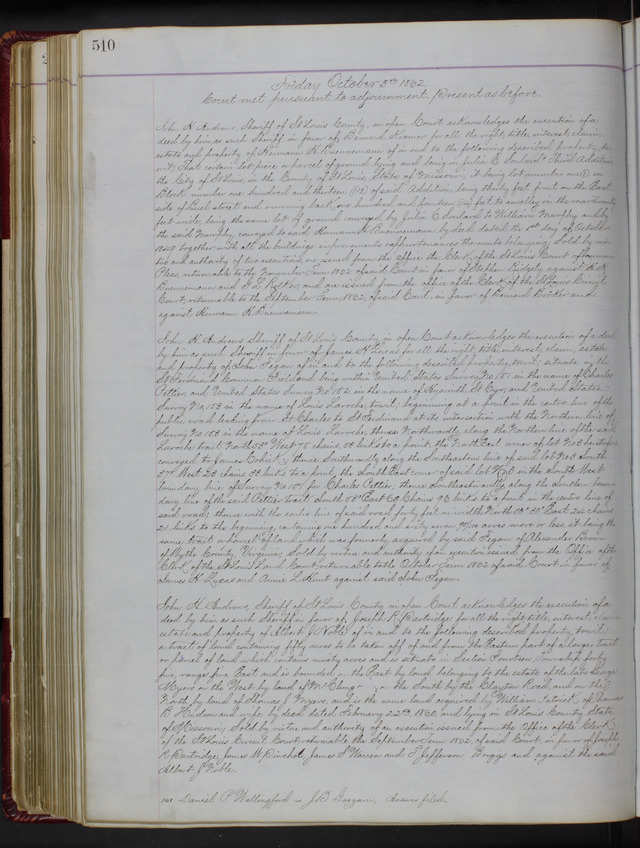 510
Friday October 3rd 1862
Court met pursuant to adjournment, Present as before.
John H. Andrews, Sheriff of St Louis County, in open Court acknowledges the execution of a
deed by him as such Sheriff in favor of Bernard for all the right, title, interest, claim,
estate and property of Hermann H. of in and to the following described property, to
wit: That certain lot, piece or parcel of ground lying and being in Julia C. Soulard's Third Addition
the City of St Louis, in the County of St Louis, State of Missouri, it being lot number one (1) in
Block number one hundred and thirteen (113) of said Addition, being thirty feet front on the East
side of street and running back one hundred and fourteen (114) feet to an alley in the rear twenty
feet wide, being the same lot of ground conveyed by Julia C. Soulard to William Murphy and by
the said Murphy conveyed to said Hermann by deed dated the 1st day of October
1849 together with all the buildings improvements appurtenances thereunto belonging. Sold by vir-
tue and authority of two executions, one issued from the office of the Clerk of the St Louis Court of Common
Pleas, returnable to the November Term 1862 of said Court in favor of Stephen Ridgely against H. H.
and and one issued from the office of the Clerk of the St Louis Circuit
Court, returnable to the September Term, 1862, of said Court in favor of Bernard and
against Hermann H.
John H. Andrews Sheriff of St Louis County, in open Court acknowledges the execution of a deed
by him as such Sheriff in favor of James H. Lucas for all the right, title, interest, claim, estate
and property of John of in and to the following described property, to wit: situate in the
St Ferdinand Common Fields and being within United States Survey No 151 in the name of Charles
and United States Survey No 152 in the name of Hyacinth St Cyr, and United States
Survey No 153 in the name of Louis Laroche, to wit; beginning at a point in the centre line of the
public road leading from St Charles to St Ferdinand at the intersection with the Northern line of
Survey No 153 in the name of Louis Laroche, thence Northwardly along the Northern line of the said
Laroche tract North 58° West 75 chains, 58 links to a point, the North East corner of lot No 3 heretofore
conveyed to James thence Southwardly along the Southeastern line of said lot No 3 South
37° West 23 chains 38 links to a point, the South East corner of said lot No 3 in the South West
boundary line of Survey No 151 for Charles thence Southeastwardly along the Southern boun-
dary line of the said tract South 58° East 60 chains 93 links to a point in the centre line of
said road; thence with the center line of said road forty feet in width North East 24 chains
21 links to the beginning, containing one hundred and sixty seven acres more or less, it being the
same tract or parcel of land which was formerly acquired by said of Alexander Brown
of Wythe County, Virginia. Sold by virtue and authority of an execution issued from the Office of the
Clerk of the St Louis Land Court returnable to the October Term 1862 of said Court in favor of
James H. Lucas and Annie L. Hunt against said John
John H. Andrews, Sheriff of St Louis County, in open Court acknowledges the execution of a
deed by him as such Sheriff in favor of Joseph R. Partridge for all the right, title, interest, claim,
estate and property of Albert J. Noble of in and to the following described property, to wit;
a tract of land containing fifty acres to be taken off of and from the Eastern part of a larger tract
or parcel of land which contains ninety acres and is situate in Section Fourteen, Township forty
five, range five East and is bounded on the East by land belonging to the estate of the late George
Myers on the West by land of McClung on the South by the Clayton Road, and on the
North by land of Thomas J. Myers, and is the same land acquired by William of Thomas
R. Hudson and wife by deed dated February 22nd 1860 and lying in St Louis County, State
of Missouri. Sold by virtue and authority of an execution issued from the Office of the Clerk
of the St Louis Circuit Court returnable the September Term 1862 of said Court, in favor of Joseph
R. Partridge, James M. James S. Warren and S. Jefferson Briggs and against the said
Albert J. Noble.
Daniel P. Wallingford vs J.B. Answer filed.